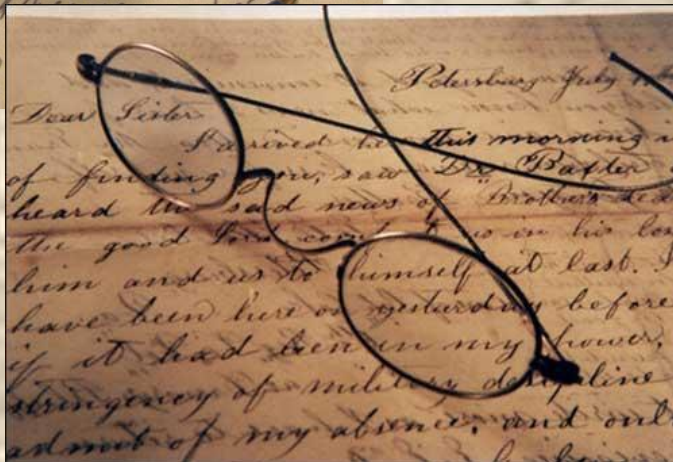 Petersburg July 11th
Dear Sister
I arrived here this morning in
of finding you, saw Dr. Baxter
heard the sad news of Brother's dea
the good Lord in his lov
him and us to himself at last. I
have been here on yesterday before
if it had been in my power,
stringency of military discipline
admit of my absence, and only